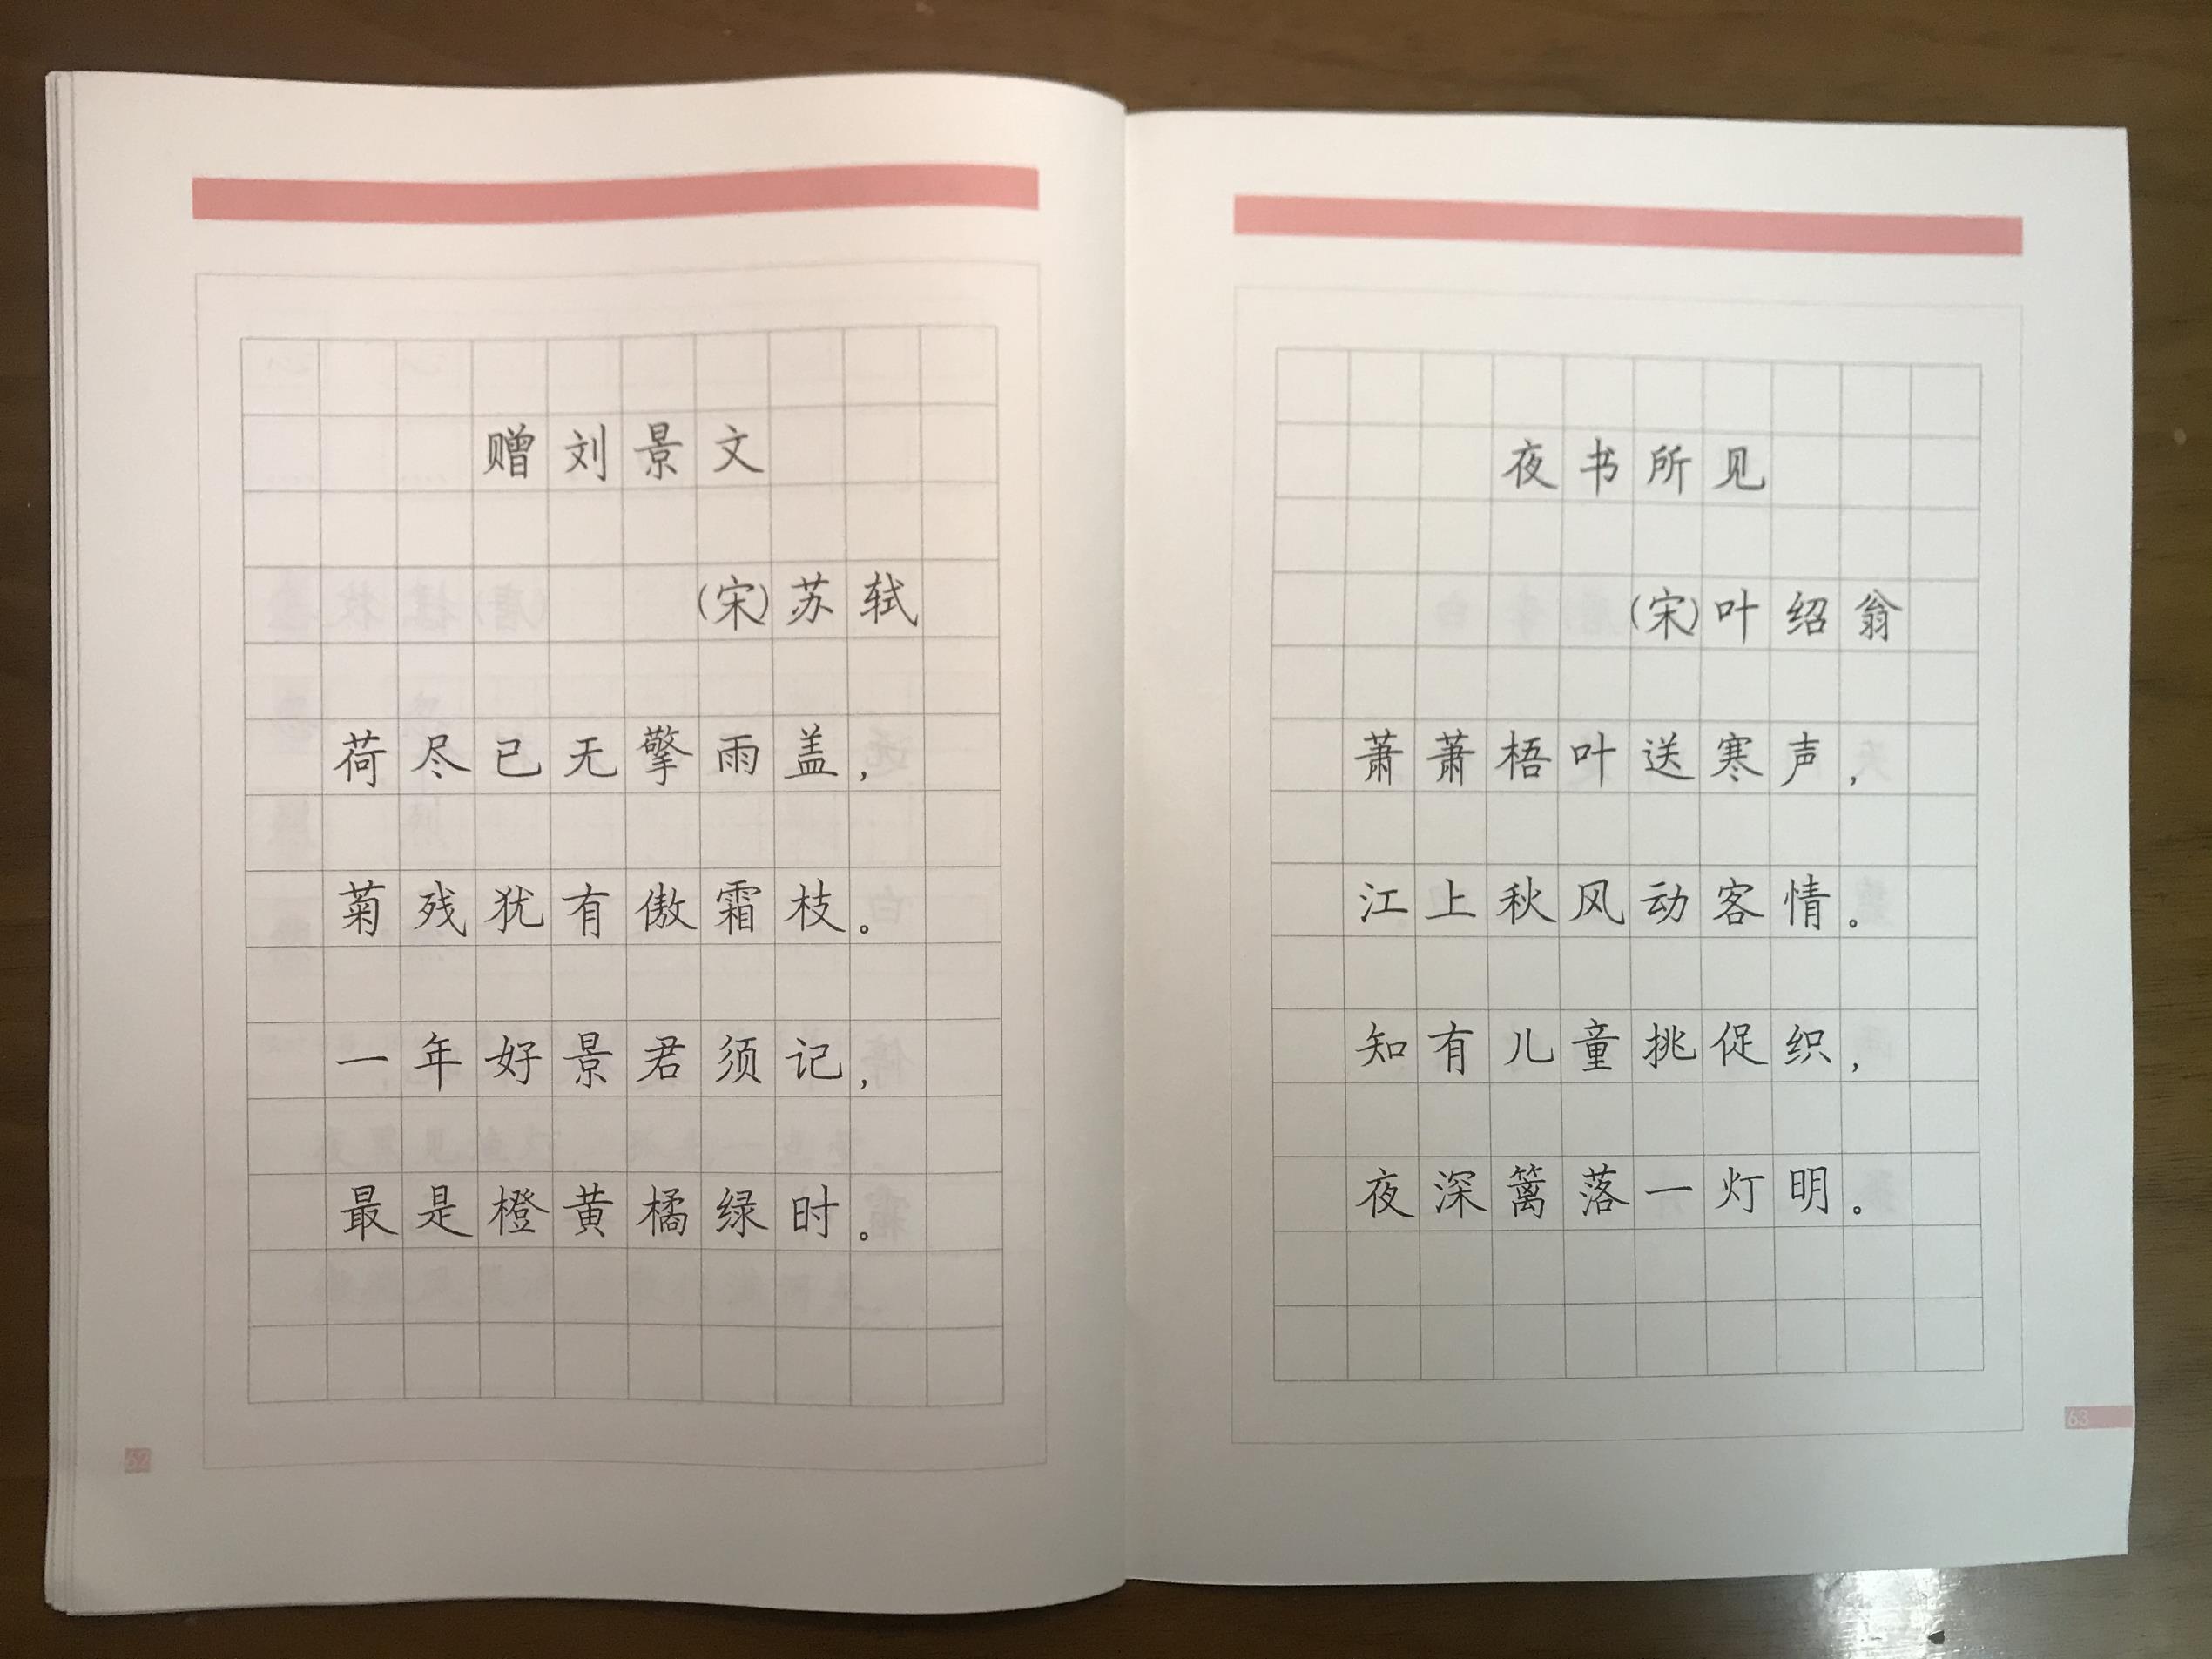 赠刘景文
(宋)苏轼
荷尽已无擎雨盖,
菊残犹有傲霜枝。
一年好景君须记,
最是橙黄橘绿时。
62
夜书所见
(宋)叶绍翁
萧萧梧叶送寒声,
江上秋风动客情。
知有儿童挑促织,
夜深篱落一灯明。
63